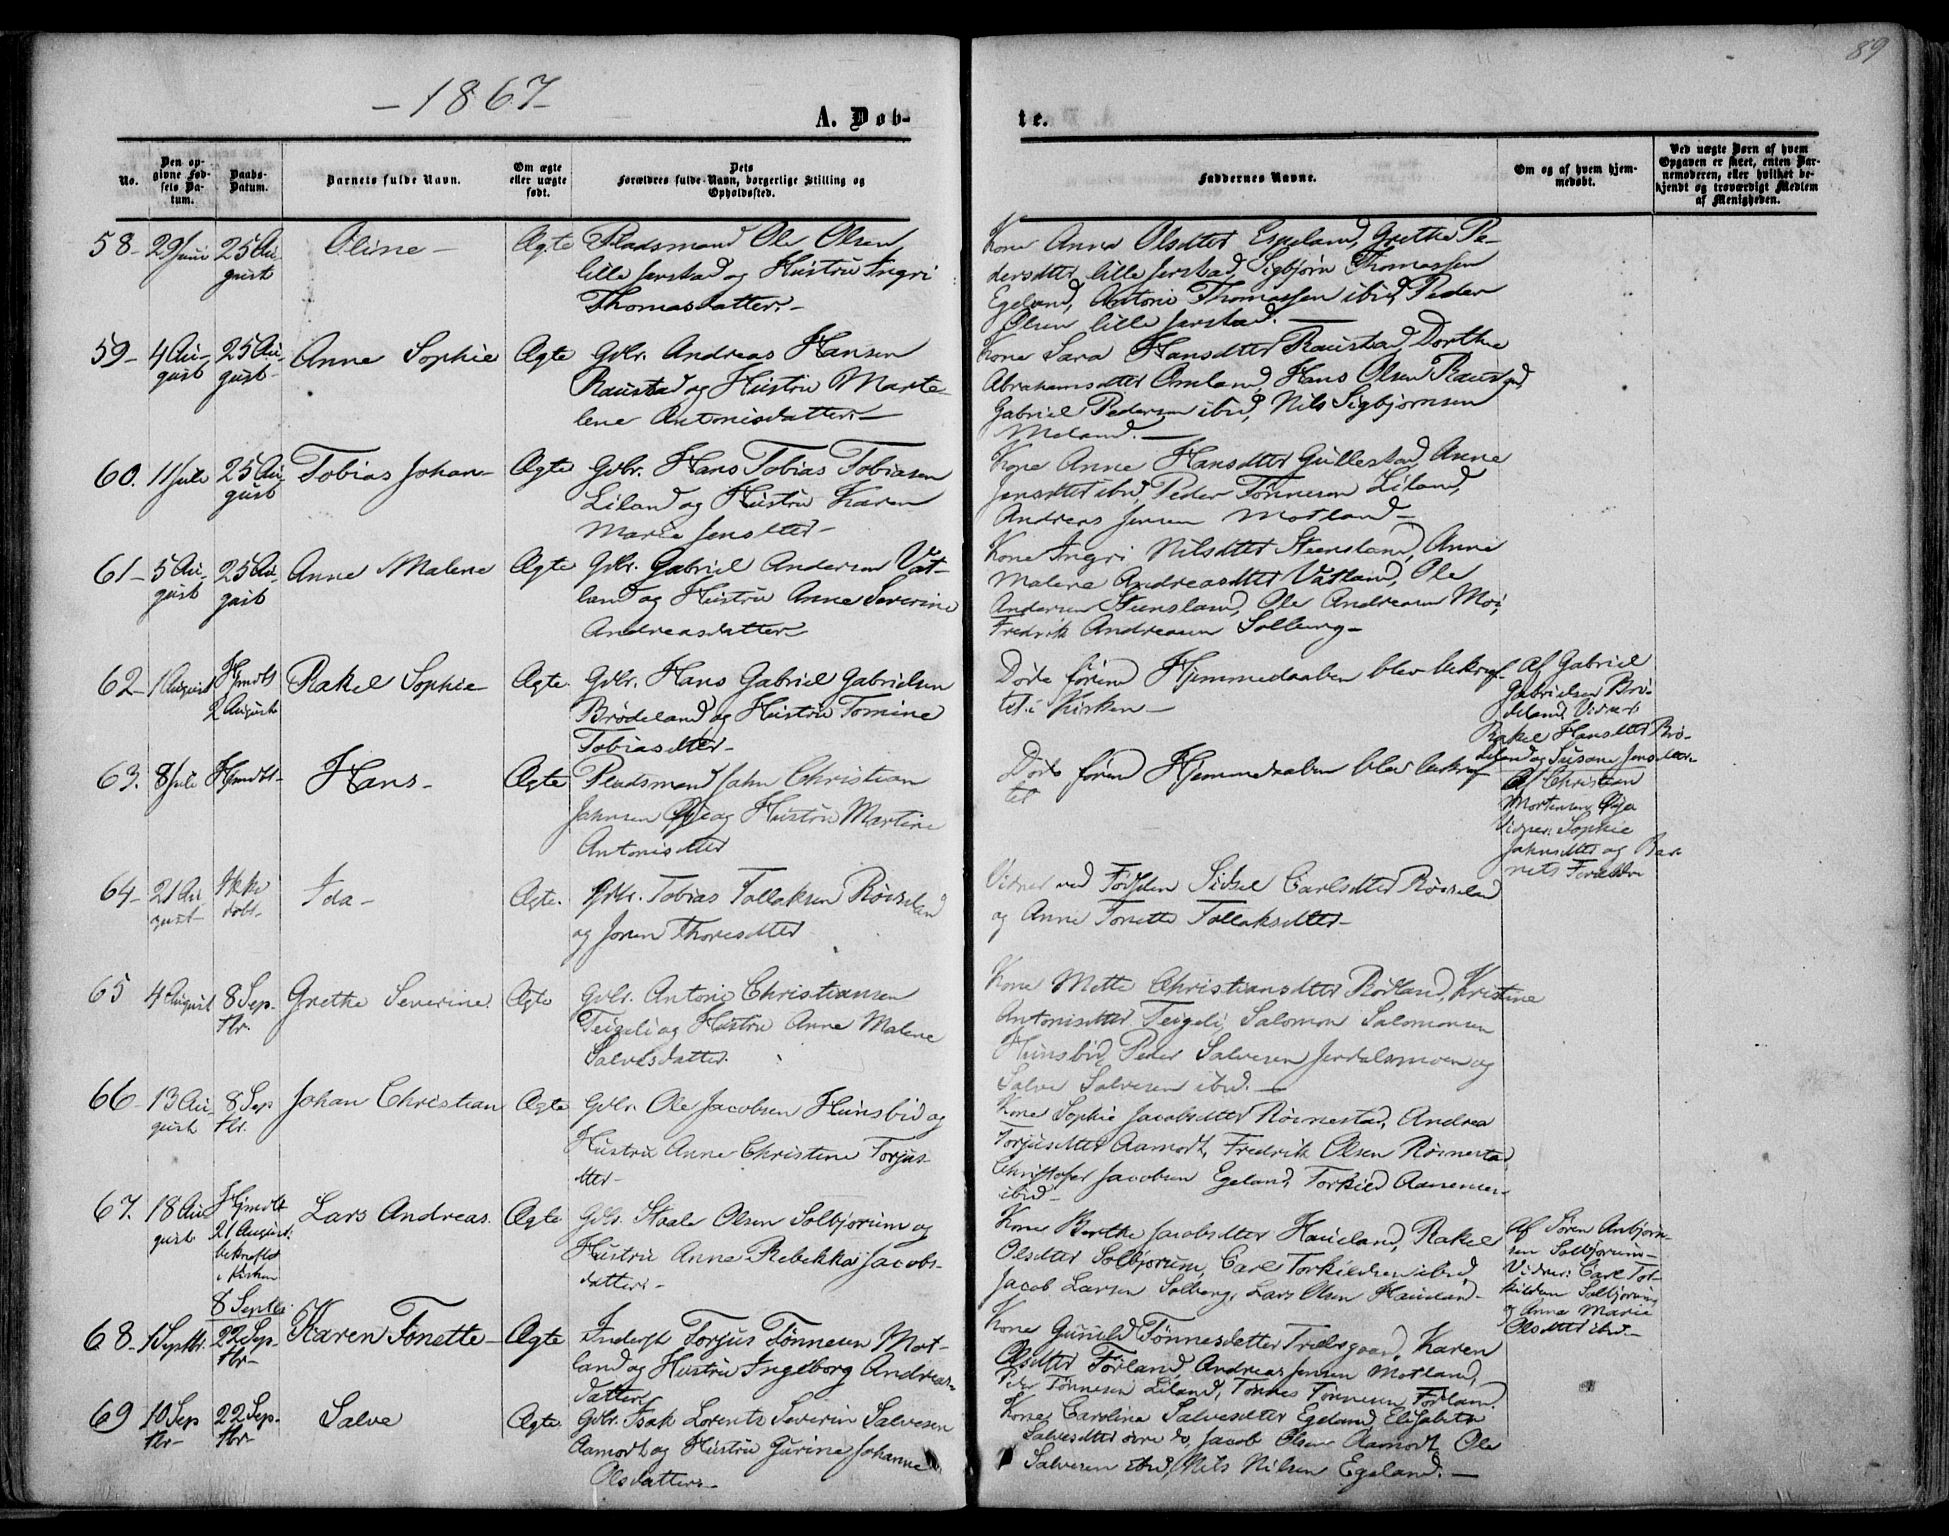 89
- 1867 -
A. Døb-
te.
No.
Den op-
givne Fød-
sels Da-
tum.
Daabs-
Datum.
Barnets fulde Navn.
Om ægte
eller uægte
født.
Dets
Forældres fulde Navn, borgerlige Stilling og
Opholdssted.
Faddernes Navne.
Om og af hvem hjem-
medøbt.
Ved uægte Børn af hvem
Opgaven er skeet, enten Bar-
nemoderen, eller hvilket be-
kjendt og troværdigt Medlem
af Menigheden.
58 - 29 Juni 25 Au-
gust
Oline -
Ægte Pladsmand Ole Olsen
lille Jerstad og Hustru Ingri
Thomasdatter. -
Kone Anna Olsdtter Espeland, Grethe Pe-
dersdtter lille Jerstad, Sigbjørn Thomassen
Egeland, Antoni Thomassen ibid, Peder
Olsen lille Jerstad. -
59 - 4 Au-
gust 25 Au-
gust -
Anne Sophie
Ægte Gdbr. Andreas Hansen
Raustad og Hustru Marte-
lene Antonisdatter. -
Kone Sara Hansdtter Raustad, Dorthea
Abrahamsdtter Omland, Hans Olsen Raustad,
Gabriel Pedersen ibid, Nils Sigbjørnsen
Meland. -
60. 11 Juli 25 Au-
gust
Tobias Johan -
Ægte Gdbr. Hans Tobias Tobiasen
Liland og Hustru Karen
Marie Jensdtter -
Kone Anne Hansdtter Gullestad, Anne
Jensdtter ibid, Peder Tønnesen Liland,
Andreas Jensen Motland -
61 - 5 Au-
gust 25 Au-
gust
Anne Malene
Ægte Gdbr. Gabriel Andersen Vat-
land og Hustru Anne Severine
Andreasdatter
Kone Ingri Nilsdtter Steensland, Anne
Malene Andreasdtter Vatland, Ole
Andersen Steensland, Ole Andreasen Moi,
Fredrik Andreasen Solberg -
62 - 1 August Hjmdbt
2 August
Rakel Sophie -
Ægte. Gdbr. Hans Gabriel Gabrielsen
Brødeland og Hustru Tomine
Tobiasdtter -
Døde førend Hjemmedaaben blev bekræf-
tet i Kirken -
Af Gabriel
Gabrielsen Brø-
deland, Vidner
Rakel Hansdtter Brø-
deland og Susane Jensdtter
63. 8 Juli Hjmdbt -
Hans -
Ægte Pladsmand Jahn Christian
Jahnsen Øye og Hustru Martine
Antonisdtter
Døde førend Hjemmedaaben blev bekræf-
tet
Af Christian
Mortensen Øye
Vidner: Sophie
Jahnsdtter og Bar-
nets Forældre
64 - 21 Au-
gust - Ikke
døbt -
Ida -
Ægte. Gdbr. Tobias Tollaksen Røiseland
og Joren Thoresdtter
Vidner ved Fødselen Sidsel Carlsdtter Røiseland
og Anne Tonette Tollaksdtter -
65 4 August 8 Sep-
tbr.
Grethe Severine.
Ægte Gdbr. Antoni Christiansen
Teigeli og Hustru Anne Malene
Salvesdatter.
Kone Mette Christiansdtter Rørland, Kristine
Antonisdtter Teigeli, Salomon Salomonsen
Hunsbid, Peder Salvesen Jerdalsmoen og
Salve Salvesen ibid. -
66 - 13 Au-
gust 8 Sep-
tbr.
Johan Christian
Ægte Gdbr. Ole Jacobsen Hunsbid og
Hustru Anne Christine Torjus-
dtter -
Kone Sophie Jacobsdtter Røinestad, Andrea
Torjusdtter Aamodt, Fredrik Olsen Røinestad
Christofer Jacobsen Egeland, Torkild Aanensen
ibid -
67. 18 Au-
gust Hjmdbt
21 August;
bekræftet
i Kirken
8 Septbr.
Lars Andreas.
Ægte Gdbr. Staale Olsen Solbjorum og
Hustru Anne Rebekka Jacobs-
datter. -
Kone Berthe Jacobsdtter Haueland, Rakel
Olsdtter Solbjorum, Carl Torkildsen ibid,
Jacob Larsen Solberg, Lars Olsen Haueland -
Af Søren Anbjørn-
sen Solbjorum -
Vidner: Carl Tor-
kildsen Solbjorum
og Anna Marie
Olsdtter ibid -
68 - 1 Septbr. 22 Sep-
tbr -
Karen Tonette -
Ægte Inderst Torjus Tønnesen Mot-
land og Hustru Ingeborg Andreas-
datter
Kone Gunild Tønnesdatter Tredesgaard, Karen
Olsdtter Førland, Andreas Jensen Motland,
Peder Tønnesen Liland, Tønnes Tønnesen Førland.
69 10 Sep-
tbr - 22 Sep-
tbr -
Salve
Ægte Gdbr. Isak Lorents Severin Salvesen
Aamodt og Hustru Gurine Johanne
Olsdatter. -
Kone Carolina Salvesdtter Egeland, Elisabeth
Salvesdtter øvre do, Jacob Olsen Aamodt, Ole
Salvesen ibid, Nils Nilsen Egeland. -